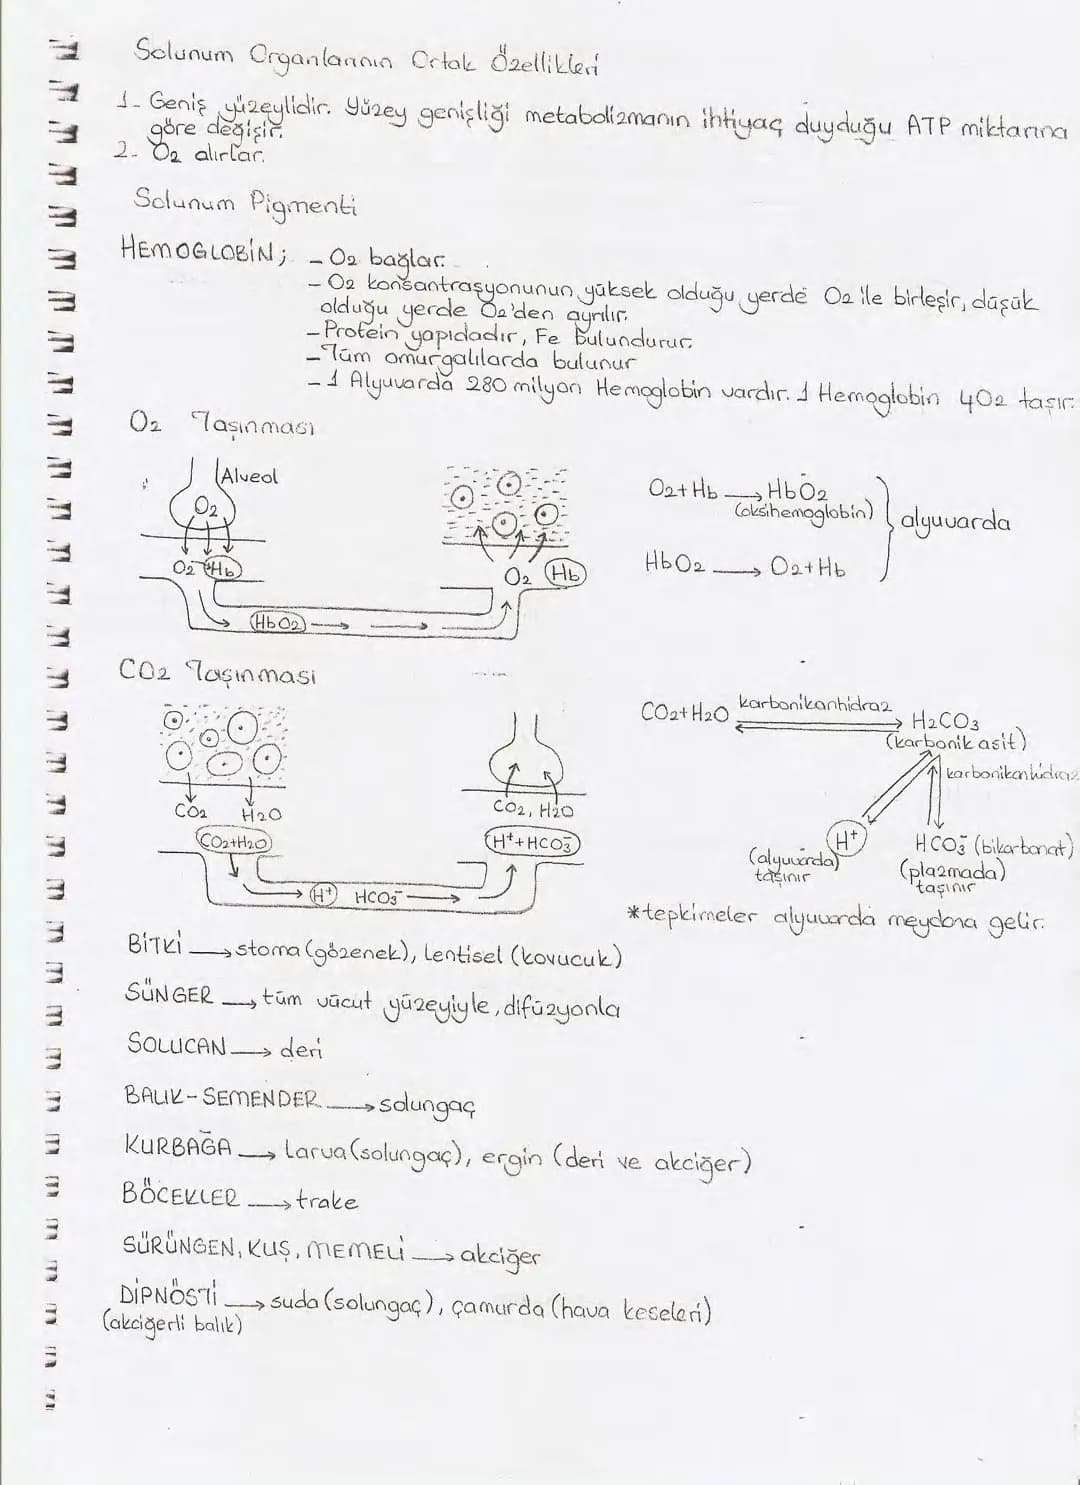 Solunum Organlarının Ortak Özellikleri
1- Geniş yüzeylidir. Yüzey genişliği metabolizmanın ihtiyaç duyduğu ATP miktarına
göre değişir.
2- O2 alırlar.
Solunum Pigmenti
HEMOGLOBİN; - O2 bağlar.
- O2 konsantrasyonunun yüksek olduğu yerde O2 ile birleşir, düşük
olduğu yerde O2'den ayrılır.
- Protein yapıdadır, Fe bulundurur.
- Tüm omurgalılarda bulunur
- 1 Alyuvarda 280 milyon Hemoglobin vardır. 1 Hemoglobin 4O2 taşır.
O2 Taşınması
Alveol
O2
O2 + Hb
HbO2 → →
O2 Hb
O2 + Hb → HbO2
(oksihemoglobin)
HbO2 → O2 + Hb
alyuvarda
CO2 Taşınması
CO2 H2O
CO2+H2O
H+ HCO3- →
CO2, H2O
H+ + HCO3-
CO2 + H2O karbonikanhidraz H2CO3
(karbonik asit)
karbonikanhidraz
H+
(alyuvarda)
taşınır
HCO3- (bikarbonat)
(plazmada)
taşınır
*tepkimeler alyuvarda meydana gelir.
BİTKİ → stoma (gözenek), lentisel (kovucuk)
SÜNGER → tüm vücut yüzeyiyle, difüzyonla
SOLUCAN → deri
BALIK-SEMENDER → solungaç
KURBAĞA → larva (solungaç), ergin (deri ve akciğer)
BÖCEKLER → trake
SÜRÜNGEN, KUŞ, MEMELİ → akciğer
DİPNÖSTİ → suda (solungaç), çamurda (hava keseleri)
(akciğerli balık)